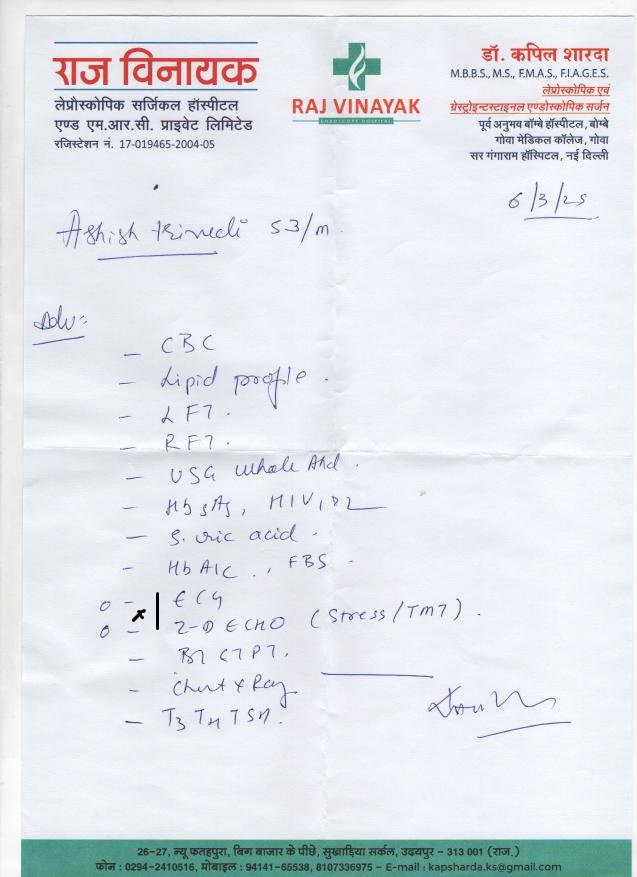 राज विनायक
लेप्रौस्कोपिक सर्जिकल हॉस्पीटल
एण्ड एम.आर.सी. प्राइवेट लिमिटेड
रजिस्टेशन नं. 17-019465-2004-05
RAJ VINAYAK
ENDOSCOPY HOSPITAL
डॉ. कपिल शारदा
M.B.B.S., M.S., F.M.A.S., F.I.A.G.E.S.
लेप्रोस्कोपिक एवं
गेस्ट्रोइन्टस्टाइनल एण्डोस्कोपिक सर्जन
पूर्व अनुभव बॉम्बे हॉस्पीटल, बोम्बे
गोवा मेडिकल कॉलेज, गोवा
सर गंगाराम हॉस्पिटल, नई दिल्ली
6/3/25
Ashish trivedi 53/m
Adv:-
- CBC
- Lipid profile.
- LFT.
- RFT.
- USG whole Abd.
- HbsAg, HIV 1,2
- S. uric acid.
- HbA1C., FBS.
0 - ECG
0 - 2-D ECHO (Stress/TMT).
- BT CT PT.
- Chest x Ray
- T3 T4 TSH.
26-27, न्यू फतहपुरा, बिग बाजार के पीछे, सुखाड़िया सर्कल, उदयपुर - 313 001 (राज.)
फोन : 0294-2410516, मोबाइल : 94141-65538, 8107336975 – E-mail : kapsharda.ks@gmail.com